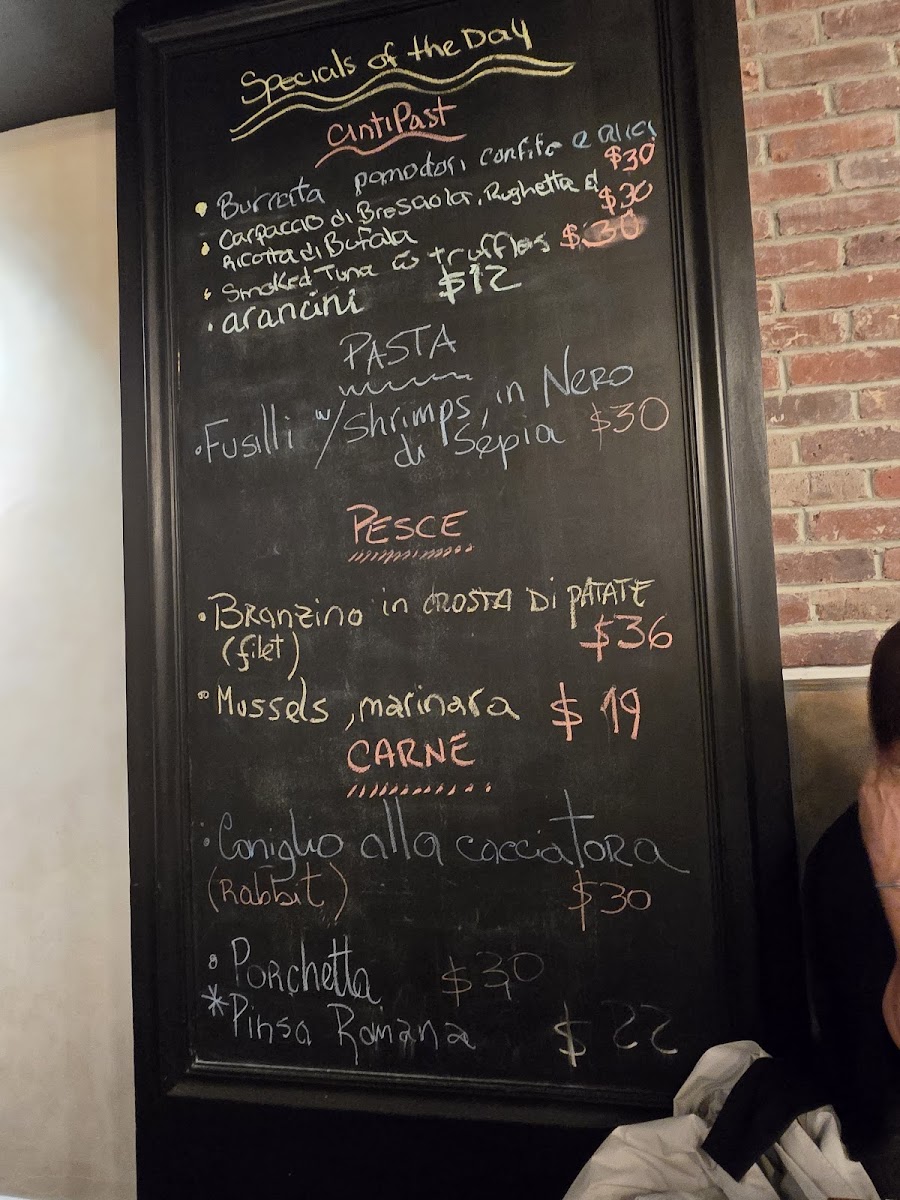 Specials of the Day
antiPast
• Burrata pomodori confite e alici $30
• Carpaccio di Bresaola, Rughetta d $30
Ricotta di Bufala
• Smoked Tuna & truffles $30
• arancini $12
PASTA
• Fusilli w/shrimps, in Nero
di Sepia $30
PESCE
• Branzino in crosta di patate
(filet) $36
• Mussels, marinara $19
CARNE
• Coniglio alla cacciatora
(Rabbit) $30
• Porchetta $30
* Pinsa Romana $22